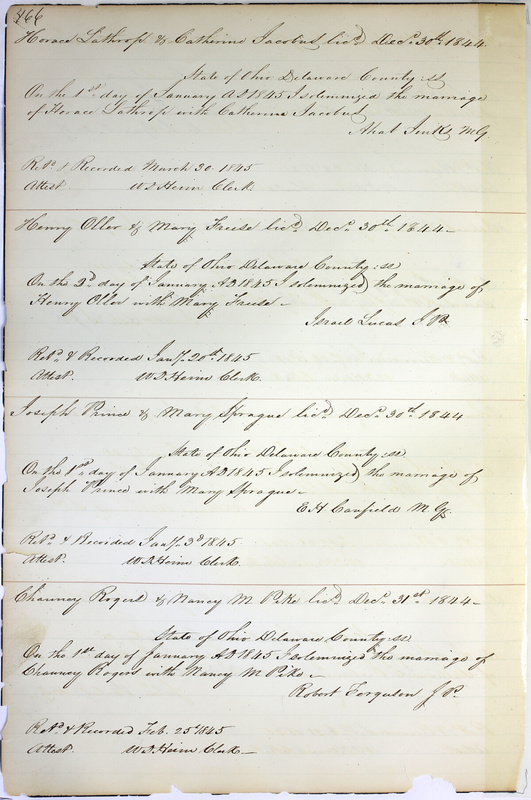 466
Horace Lathrop & Catherine Jacobus, licd Decr 30th 1844
State of Ohio Delaware County ss
On the 1st day of January AD 1845 I solemnized the marriage
of Horace Lathrop with Catherine Jacobus
Ahab Jinks MG
Retd & Recorded March 30 1845
Attest W D Heim Clerk
Henry Oller & Mary Freese licd Decr 30th 1844 –
State of Ohio Delaware County ss
On the 2d day of January AD 1845 I solemnized the marriage of
Henry Oller with Mary Freese –
Israel Lucas J P.
Retd & Recorded Jany 20th 1845
Attest. W D Heim Clerk.
Joseph Prince & Mary Sprague licd Decr 30th 1844
State of Ohio Delaware County ss
On the 1st day of January AD 1845 I solemnized the marriage of
Joseph Prince with Mary Sprague –
E H Canfield M G.
Retd & Recorded Jany 3d 1845
Attest. W D Heim Clerk.
Chauncy Rogers & Nancy M Pike licd Decr 31st 1844 –
State of Ohio Delaware County ss
On the 1st day of January AD 1845 I solemnized the marriage of
Chauncy Rogers with Nancy M Pike –
Robert Ferguson J P.
Retd & Recorded Feb. 25 1845
Attest. W D Heim Clerk –